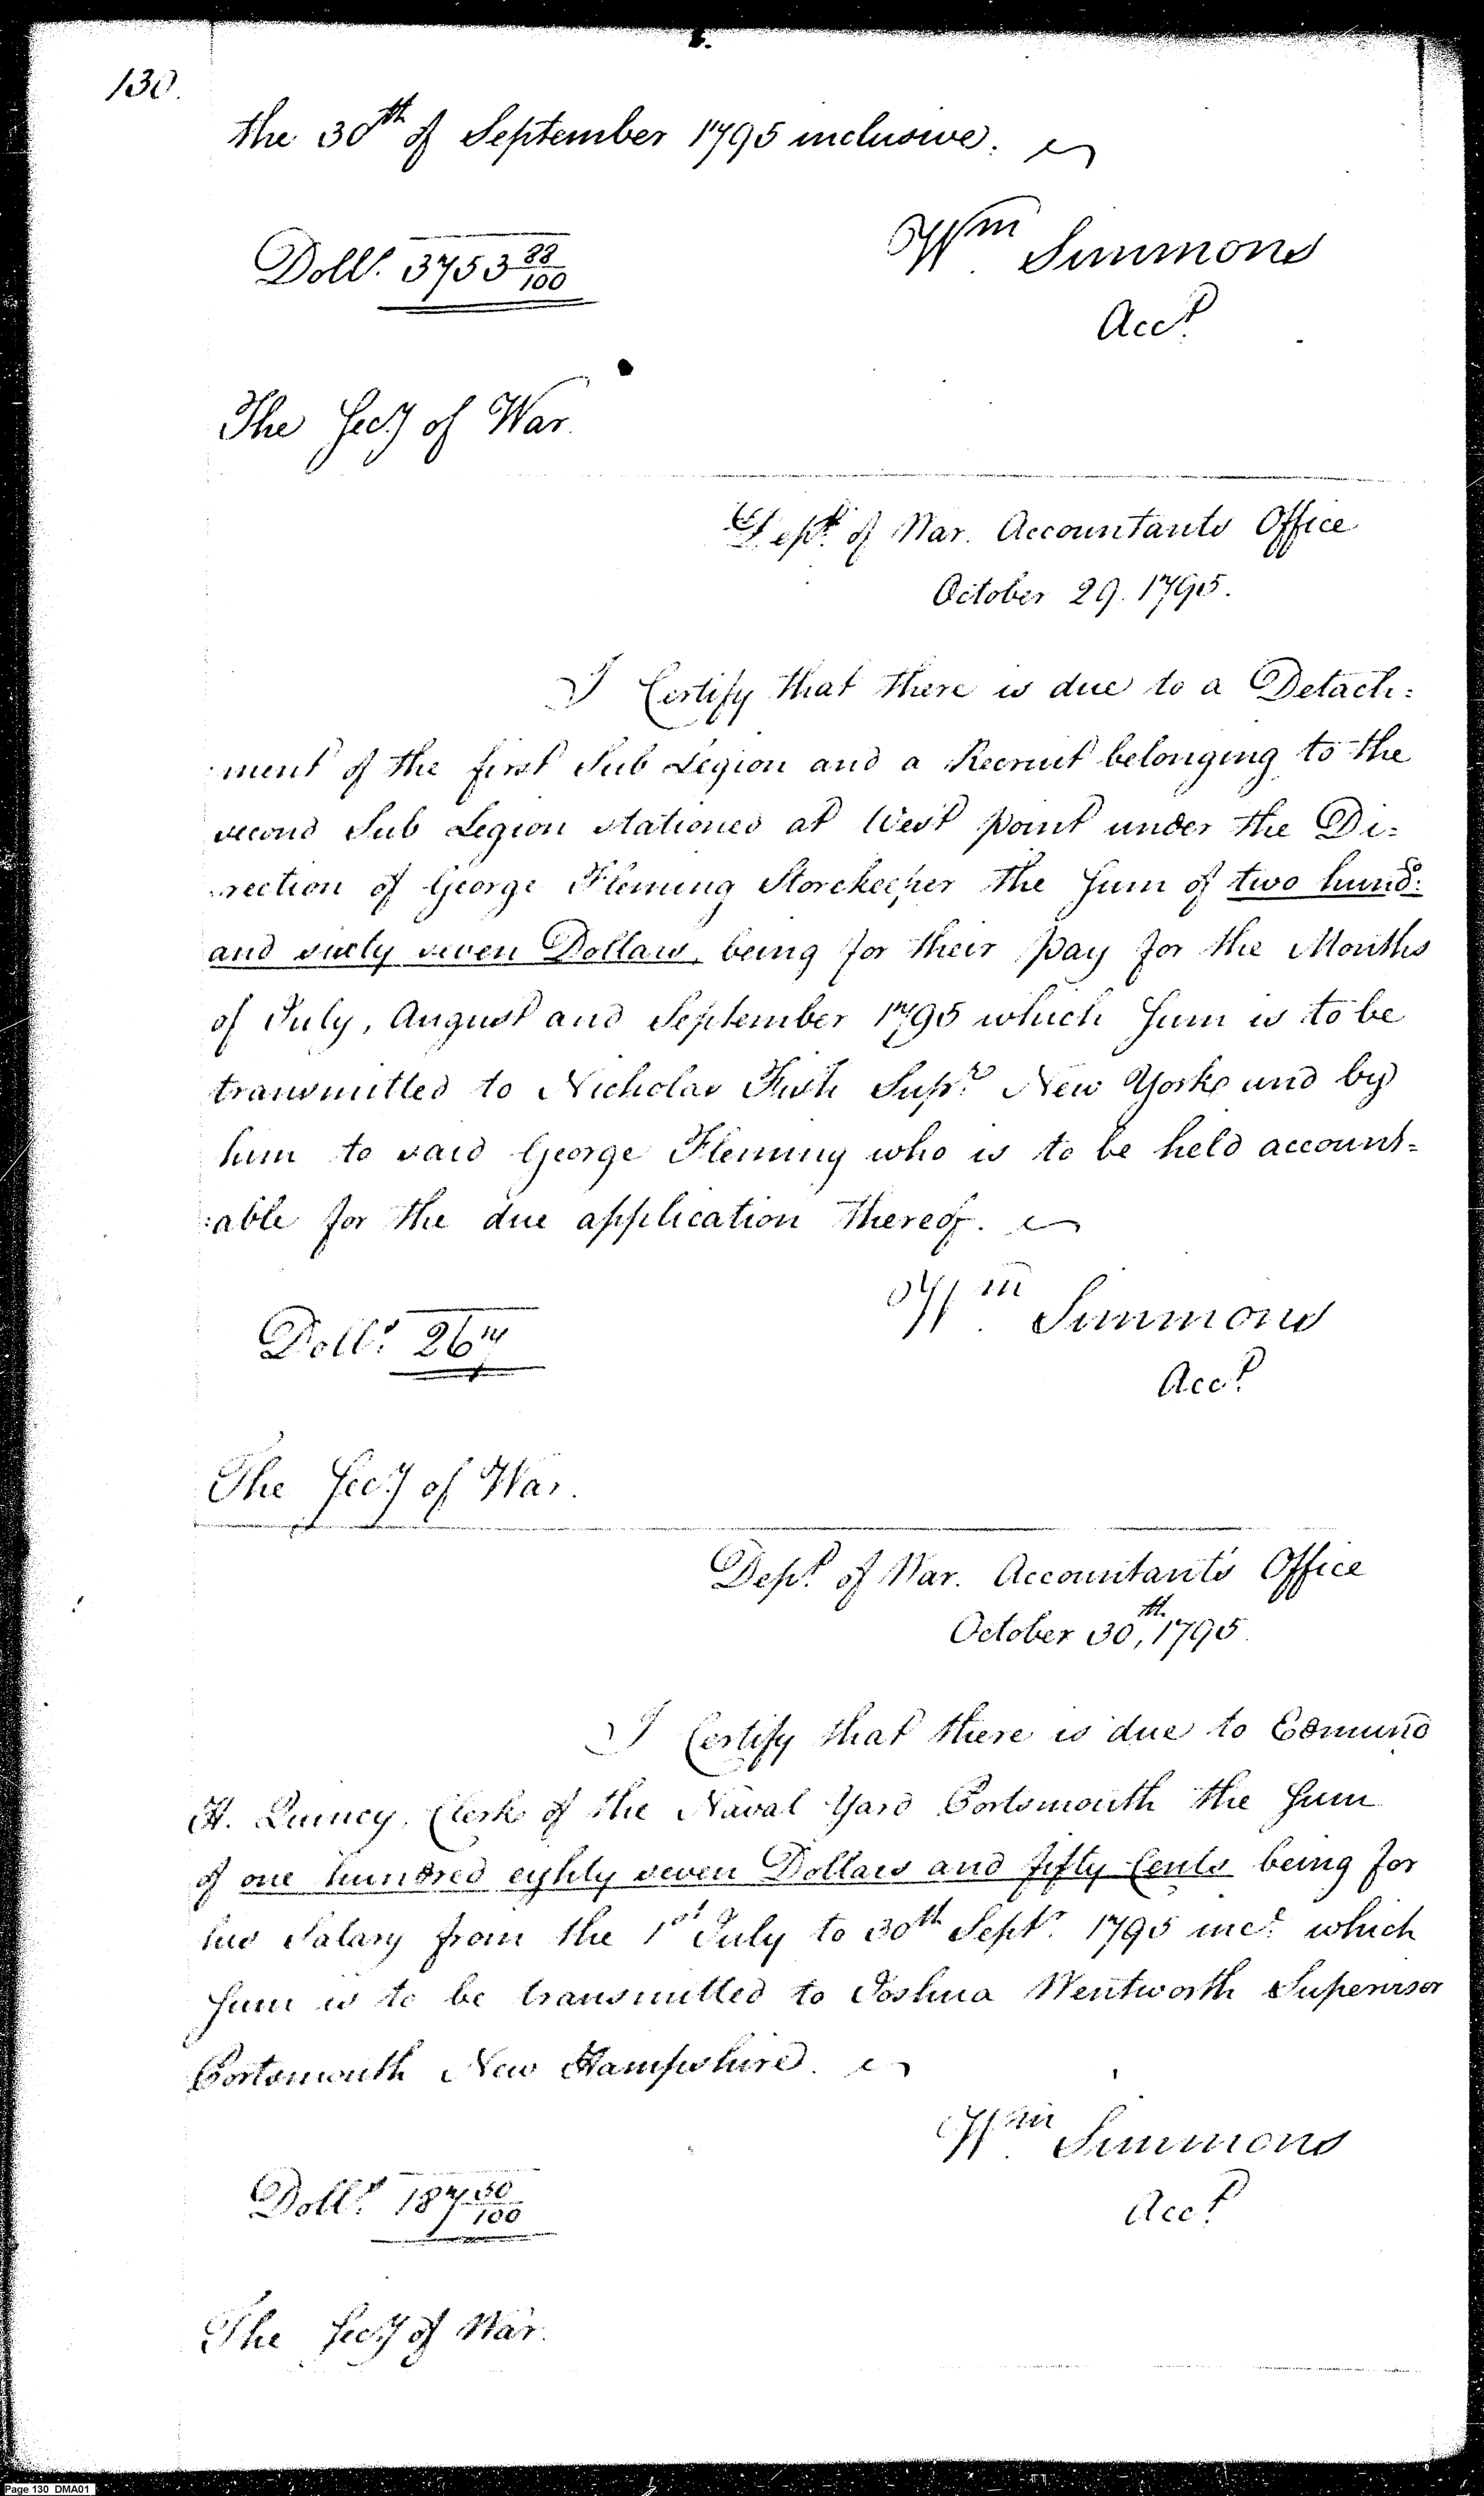 130.
the 30th of September 1795 inclusive.
Wm Simmons
Dolls. 3753 88/100
Acct.
The Secy of War.
Dept. of War. Accountants Office
October 29. 1795.
I Certify that there is due to a Detach=
=ment of the first Sub Legion and a Recruit belonging to the
second Sub Legion stationed at West point under the Di=
=rection of George Fleming Storekeeper the Sum of two hundd.
and sixty seven Dollars, being for their pay for the Months
of July, August and September 1795 which Sum is to be
transmitted to Nicholas Fish Supr. New York and by
him to said George Fleming who is to be held account=
=able for the due application thereof.
Wm Simmons
Dolls. 267
Acct.
The Secy of War.
Dept. of War. Accountant's Office
October 30th, 1795.
I Certify that there is due to Edmund
H. Quincy, Clerk of the Naval Yard Portsmouth the Sum
of one hundred eighty seven Dollars and fifty Cents being for
his Salary from the 1st July to 30th Septr. 1795 incl. which
Sum is to be transmitted to Joshua Wentworth Supervisor
Portsmouth New Hampshire.
Wm Simmons
Dolls. 187 50/100
Acct.
The Secy of War.
Page 130 DMA01